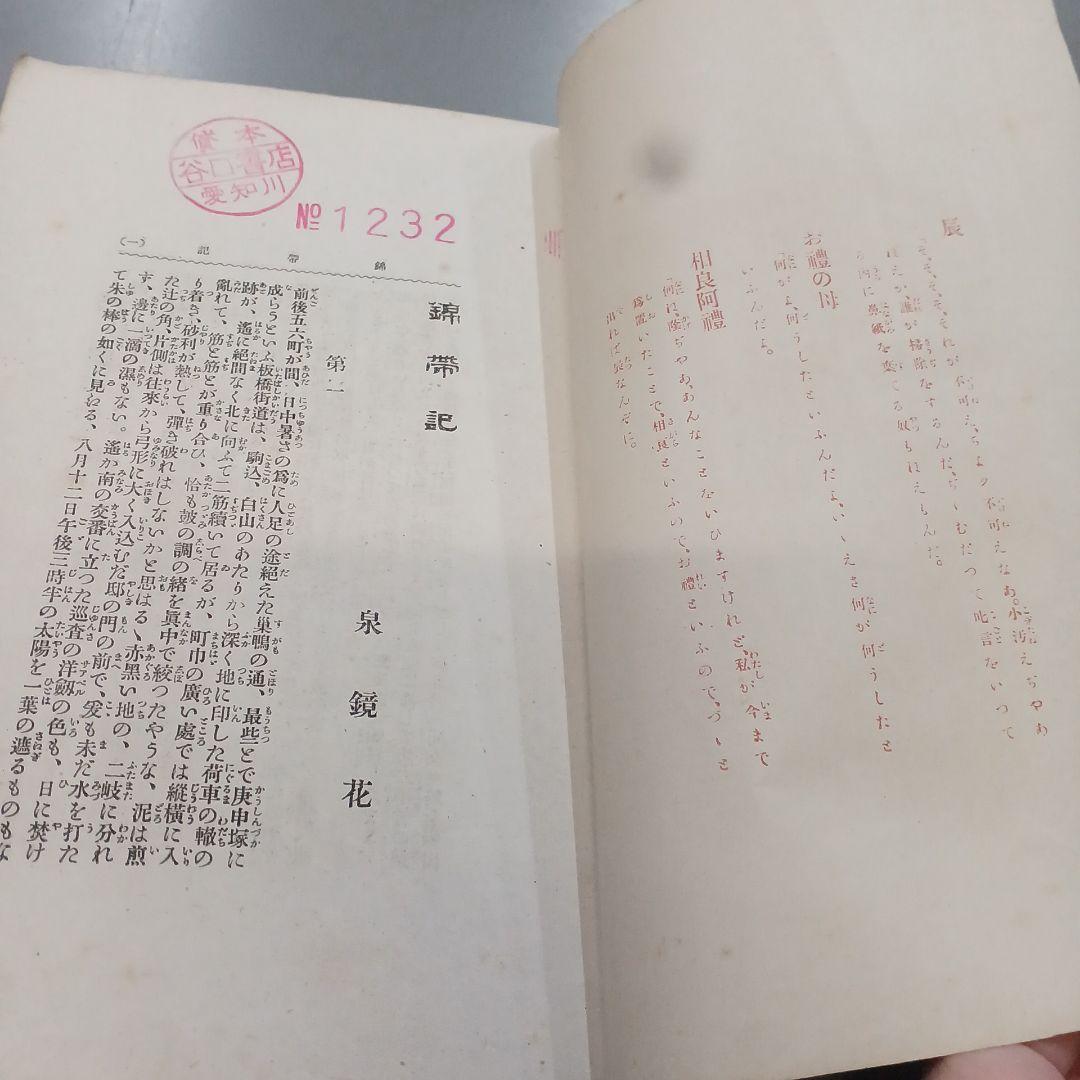 辰
『そ、そ、そ、それが不可え、ちよツ不可えなあ。小汚えぢやあ
ねえか、誰が掃除をするんだ、ぢゝむだつて叱言をいつて
る内に鼻紙を棄てる奴もねえもんだ。
お禮の母
『何がよ、何うしたといふんだよ、いゝえさ何が何うしたと
いふんだよ。
相良阿禮
『何ね、陰ぢやあ、あんなことをいひますけれど、私が今まで
為置いたことで、相良といふので、お禮といふので、づゝと
出れば最なんぞに。
貸本
谷口書店
愛知川
№1232
錦帶記 (一)
錦帶記
泉鏡花
第一
前後五六町が間、日中暑さの爲に人足の途絶えた巣鴨の通、最些とで庚申塚に
成らうといふ板橋街道は、駒込、白山のあたりから深く地に印した荷車の轍の
跡が、遙に絶間なく北に向ふて二筋續いて居るが、町巾の廣い處では縱横に入
亂れて、筋と筋とが重り合ひ、恰も皷の調の緒を眞中で絞つたやうな、泥は煎
り着き、砂利が熱して、彈き破れはしないかと思はるゝ赤黑い地の、二岐に分れ
た辻の角、片側は往來から弓形に大く入込むだ邸の門の前で、爰も未だ水を打た
す、邊に一滴の濕もない。遙か南の交番に立つた巡査の洋劔の色も、日に焚け
て朱の棒の如くに見ゆる、八月十二日午後三時半の太陽を一葉の遮るものもな